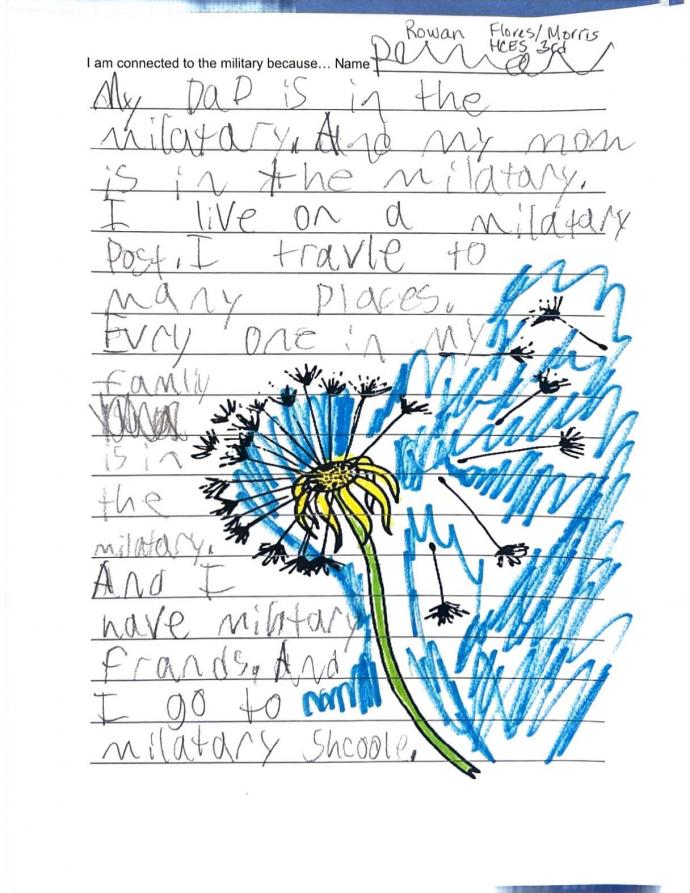 Rowan Flores/Morris
HCES 3rd
I am connected to the military because... Name Rowan
My DaD is in the
milatary. And my mom
is in the milatary.
I live on a milatary
Post. I travle to
many places.
Evry one in my
famly
is in
the
milatary.
And I
have milatary
frands. And
I go to
milatary Shcoole.